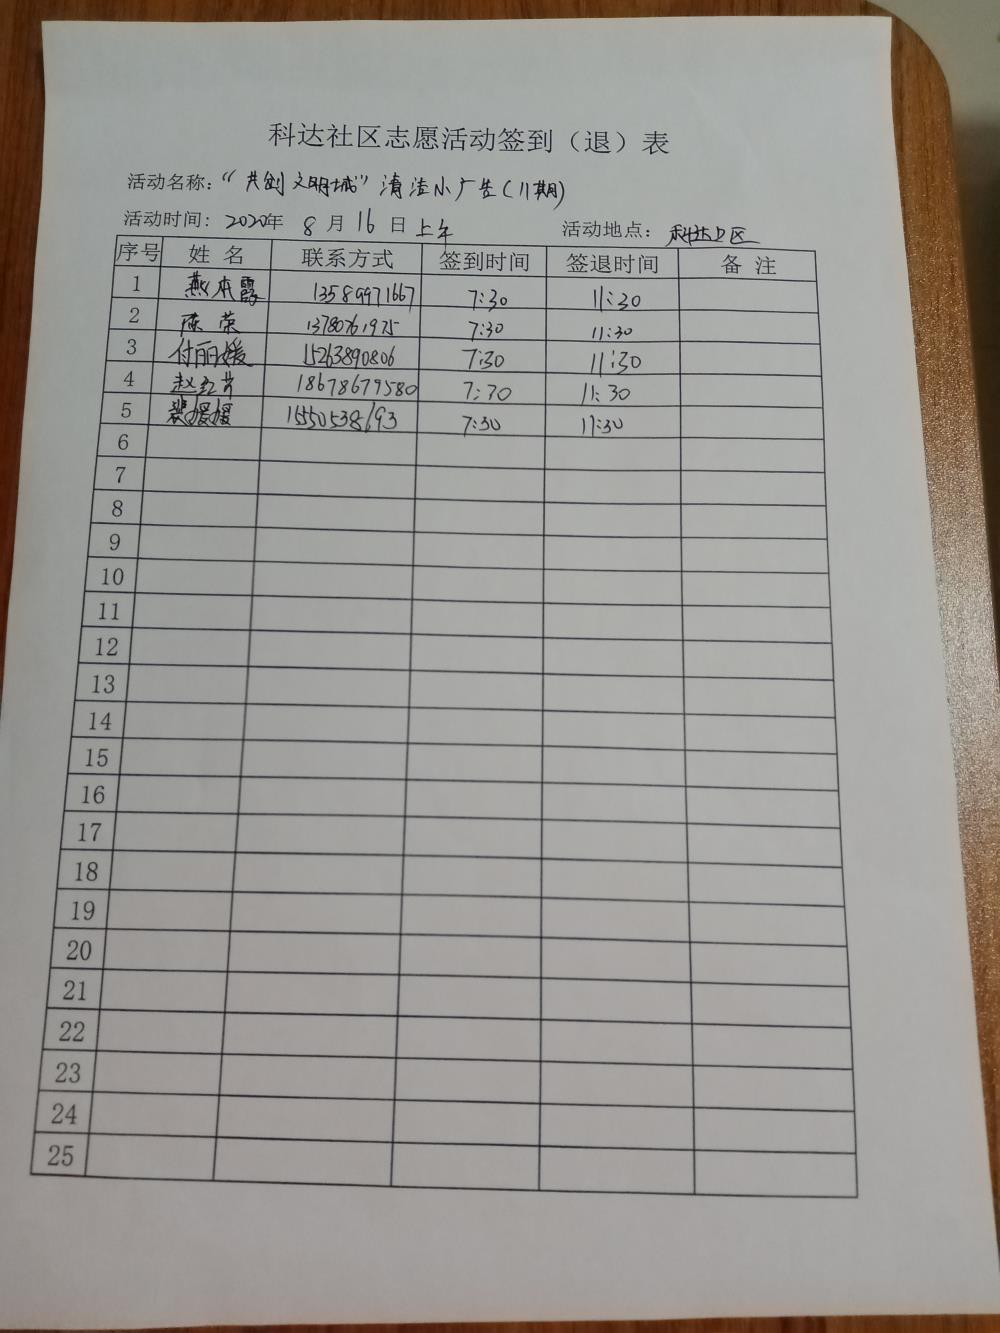 科达社区志愿活动签到（退）表
活动名称：“共创文明城”清洁小广告（11期）
活动时间：2020年 8月16日上午 活动地点：科达社区
序号 姓名 联系方式 签到时间 签退时间 备注
1 燕本霞 13589971667 7:30 11:30
2 陈荣 13780761975 7:30 11:30
3 付丽媛 15263890806 7:30 11:30
4 赵红芹 18678679580 7:30 11:30
5 裴媛媛 15550538693 7:30 11:30
6
7
8
9
10
11
12
13
14
15
16
17
18
19
20
21
22
23
24
25